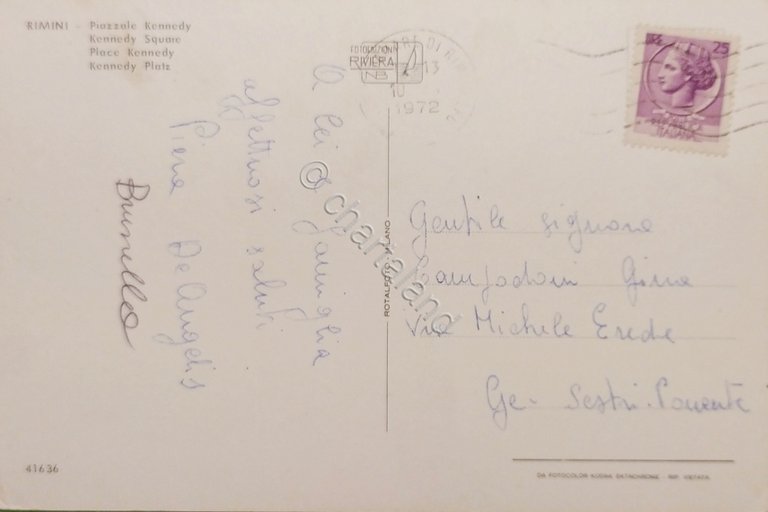 RIMINI - Piazzale Kennedy
Kennedy Square
Place Kennedy
Kennedy Platz
FOTOEDIZIONI
RIVIERA
NB
13
10
1972
25
A lei e famiglia
affettuosi saluti
Piera De Angelis
Brunello
ROTALFOTO - MILANO
Gentile Signora
Gina
Via Michele Erede
Ge - Sestri-Ponente
41636
DA FOTOCOLOR KODAK EKTACHROME RIP. VIETATA
© chartaland